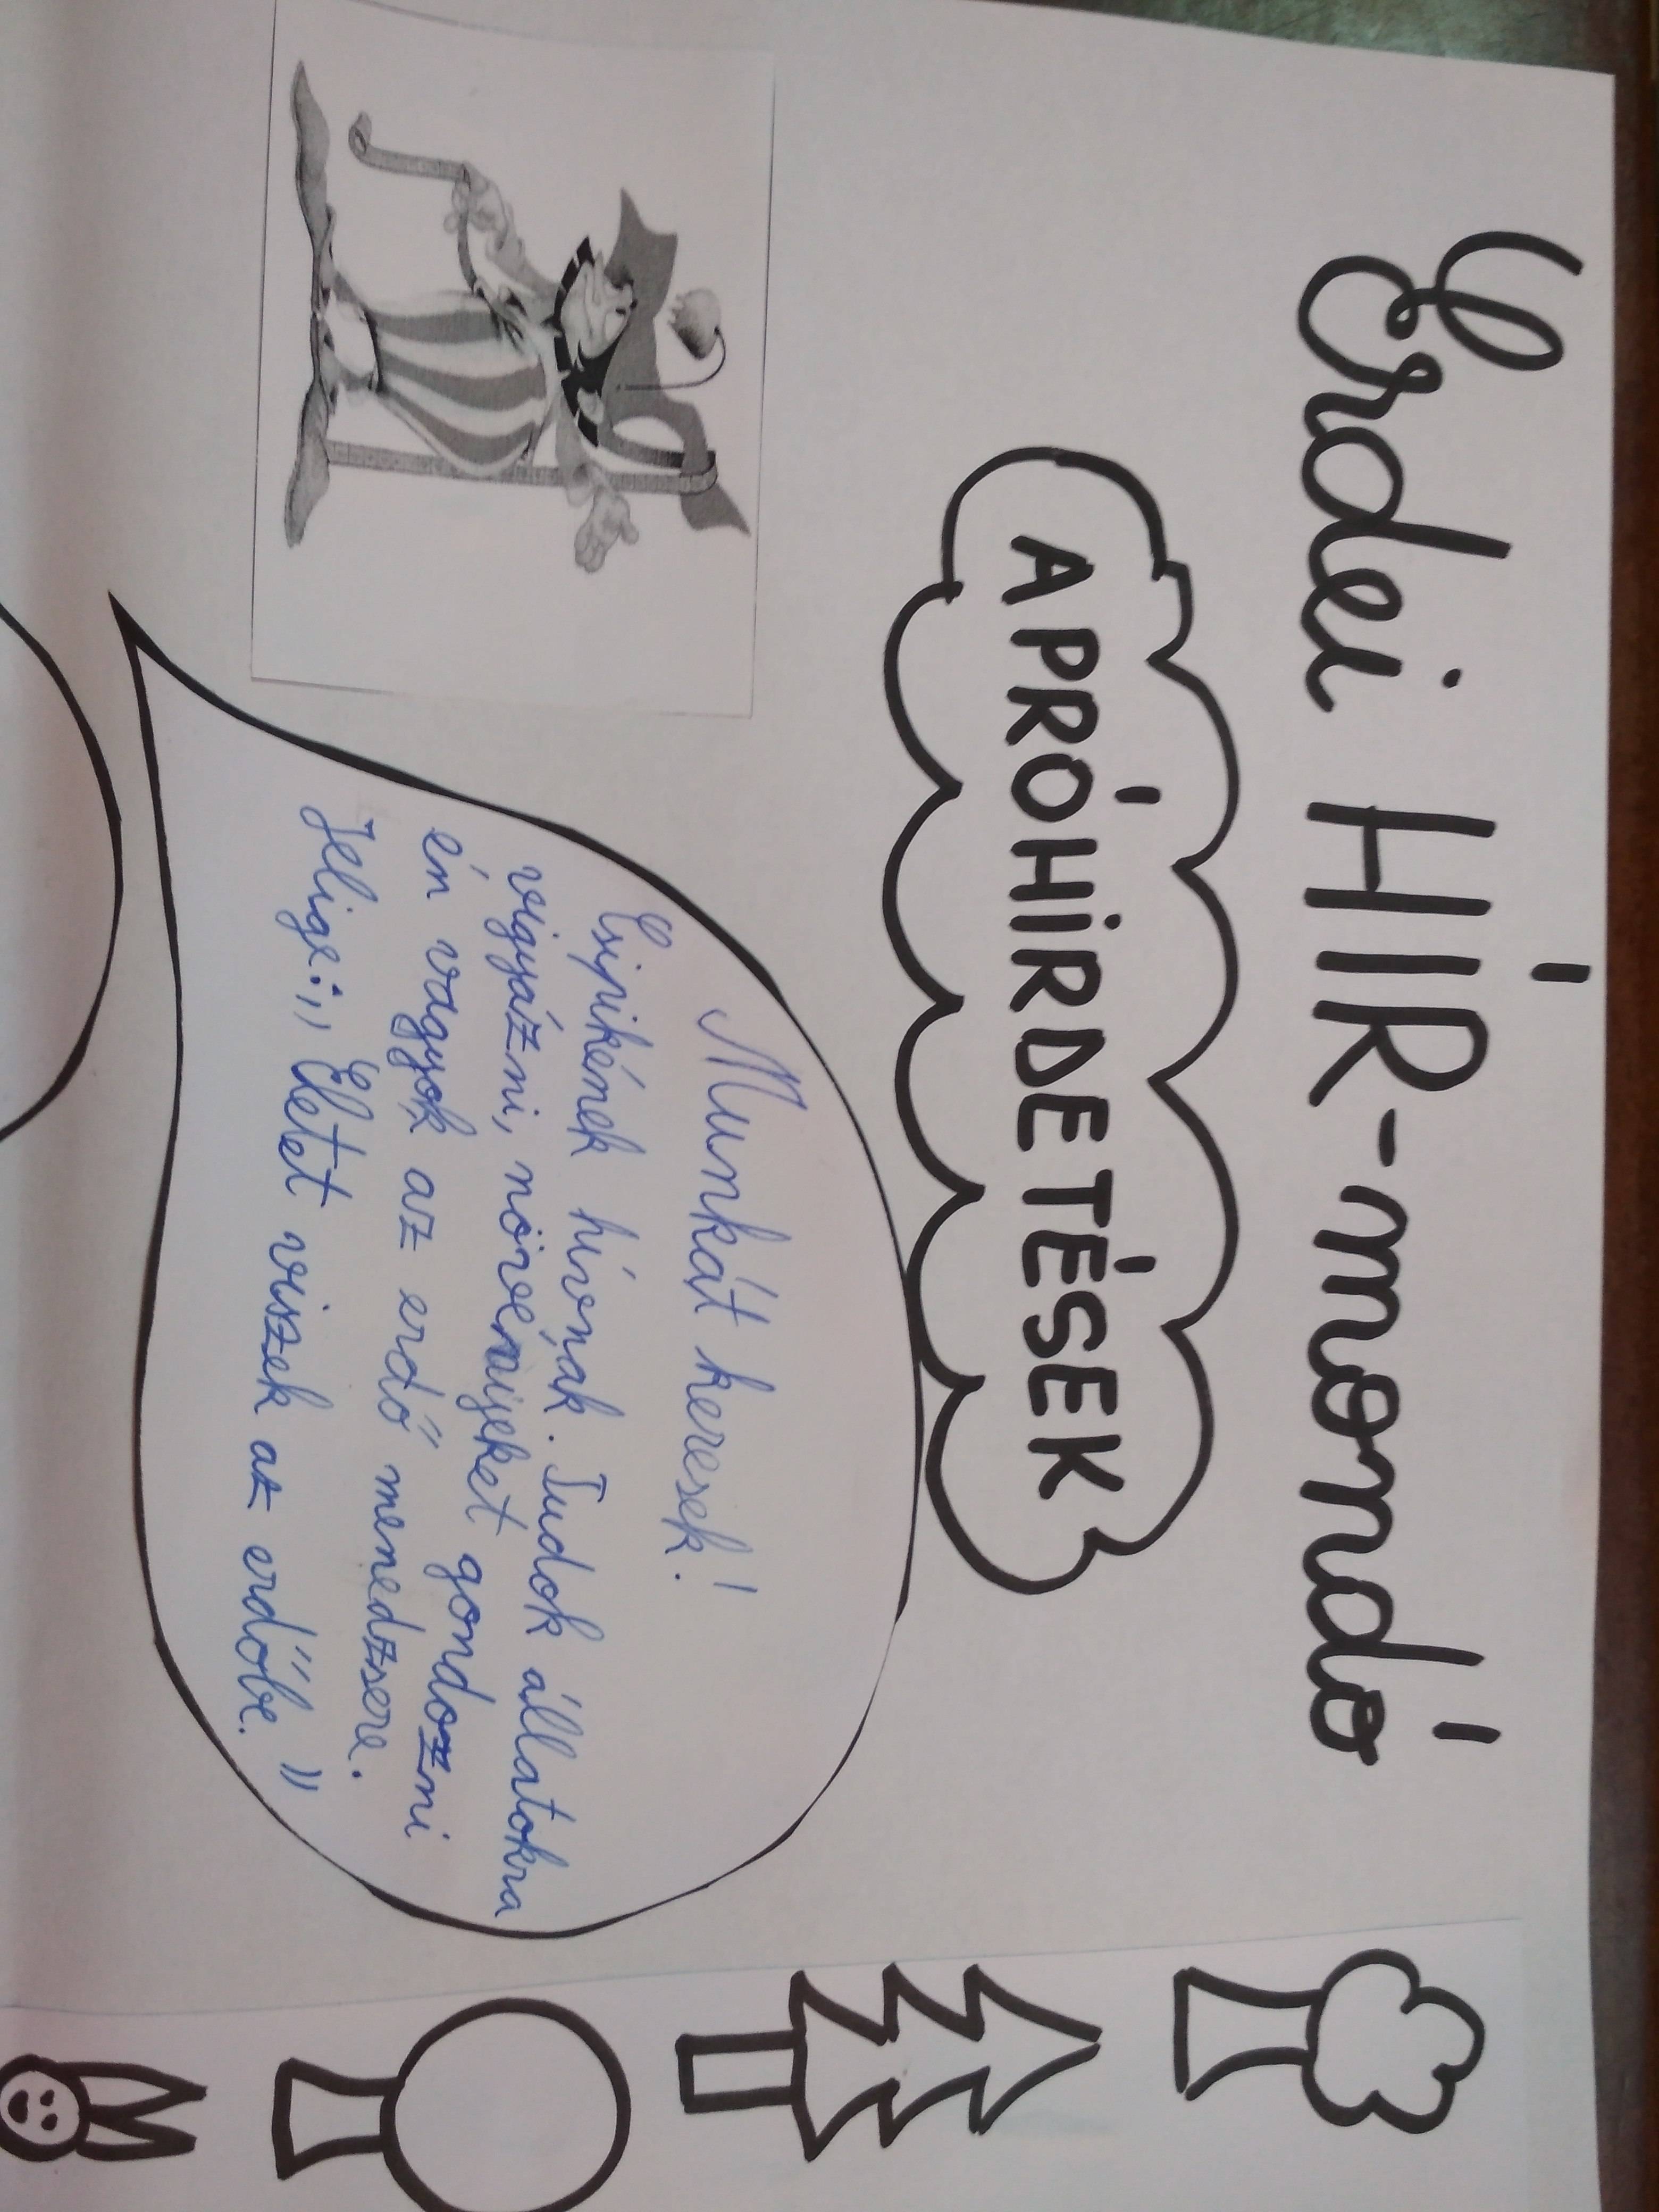 Erdei HÍR-mondó
APRÓHIRDETÉSEK
Munkát keresek!
Csipikének hívnak. Tudok állatokra
vigyázni, növényeket gondozni
én vagyok az erdő menedzsere.
Jelige: ,,Életet viszek az erdőbe."